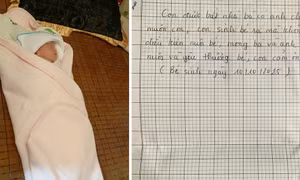 Con được biết nhà ba có anh c
muốn con, con sinh bé ra mà khôn
điều kiện nuôi bé, mong ba và anh
nuôi và yêu thương bé, con cảm ơ
( Bé sinh ngày 10/10/2025 )